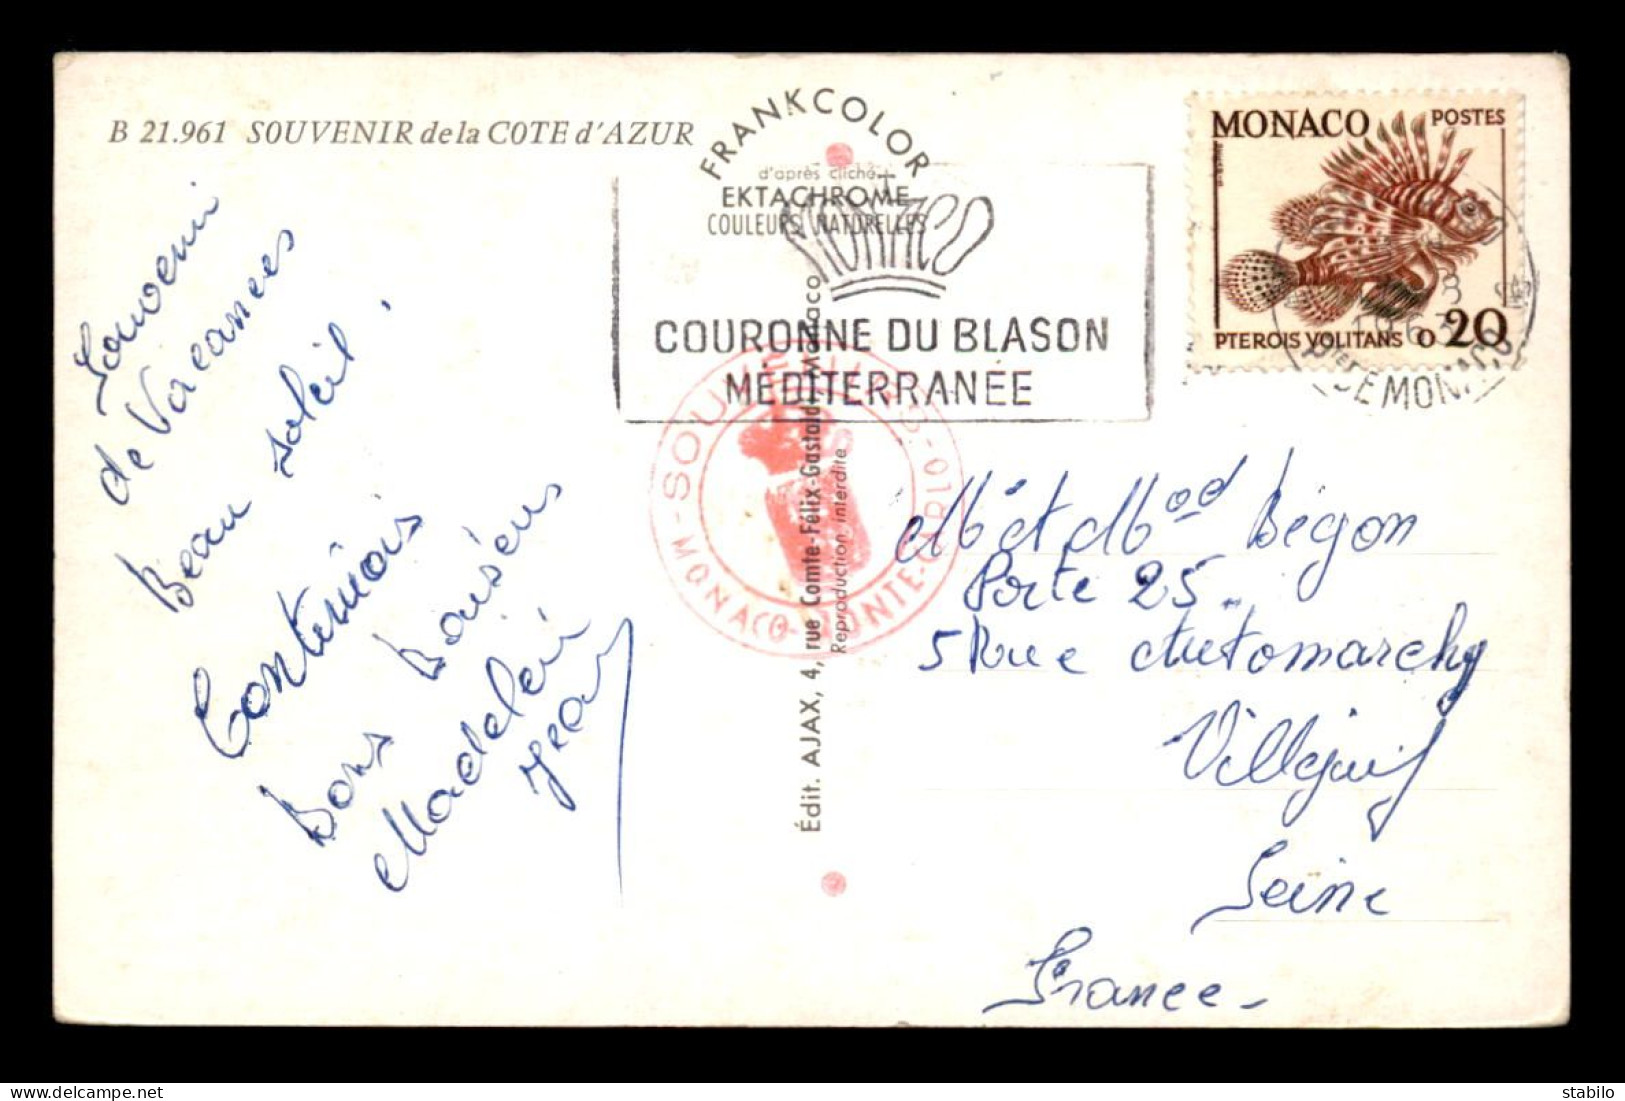 B 21.961 SOUVENIR de la COTE d'AZUR
Souvenir
de Vacances
Beau soleil.
Conteniois
Bons baisers
Madelein
Jean
FRANKCOLOR
d'après cliché
EKTACHROME
COULEURS NATURELLES
MONACO
COURONNE DU BLASON
MÉDITERRANÉE
Édit. AJAX, 4, rue Comte-Félix-Gastaldi - Monaco
Reproduction interdite
MONACO-MONTE-CARLO
MONACO POSTES
PTEROIS VOLITANS 0.20
1963
DE MONACO
Mr et Mad Begon
Porte 25
5 Rue Automarchy
Villejuif
Seine
France
delcampe.net
stabilo